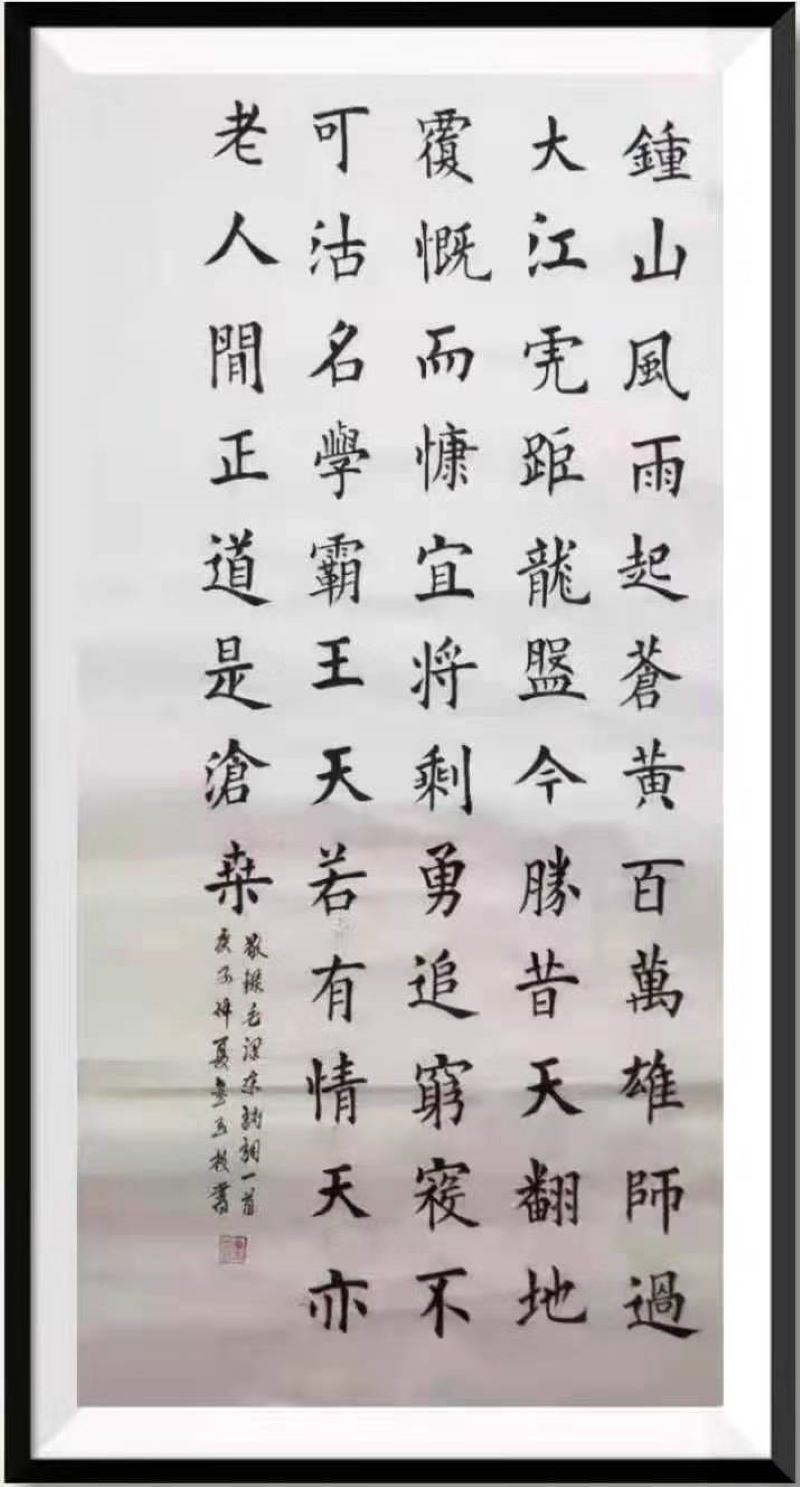 鍾山風雨起蒼黃百萬雄師過
大江虎距龍盤今勝昔天翻地
覆慨而慷宜将剩勇追窮寇不
可沽名學霸王天若有情天亦
老人閒正道是滄桒
敬録毛澤東詩詞一首
庚子仲夏書